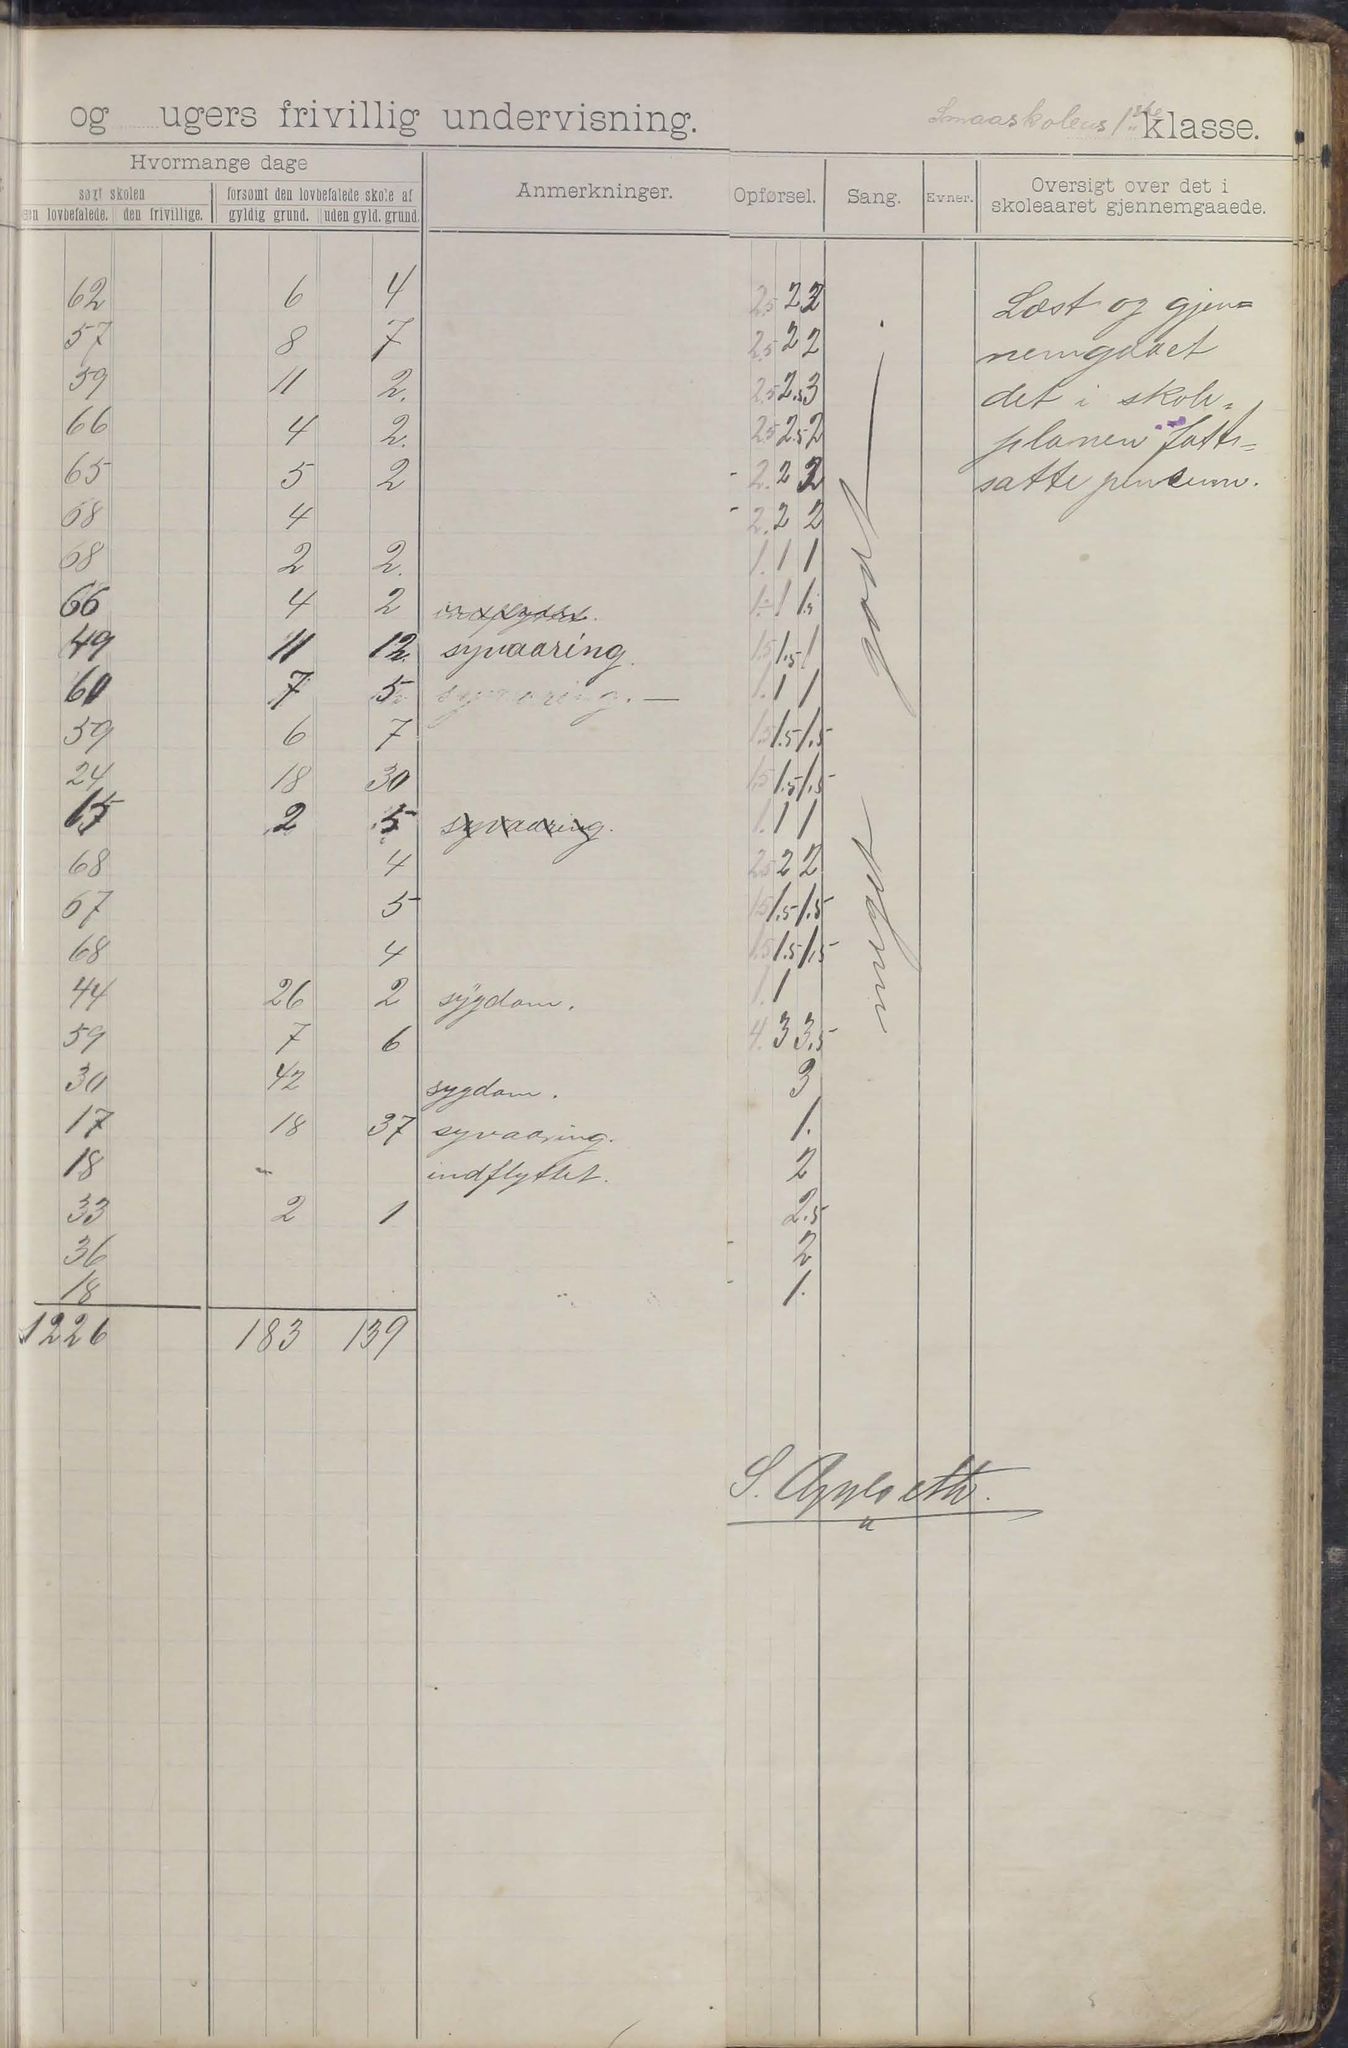 og ugers frivillig undervisning. Smaaskolens 1ste klasse.
Hvormange dage
søgt skolen forsømt den lovbefalede skole af
den lovbefalede. den frivillige. gyldig grund. uden gyld. grund.
Anmerkninger. Opførsel. Sang. Evner. Oversigt over det i
skoleaaret gjennemgaaede.
62 6 4 2.5 2 2
57 8 7 2.5 2 2
59 11 2. 2.5 2.5 3
66 4 2. 2.5 2.5 2
65 5 2 2. 2 2
68 4 2. 2 2
68 2 2. 1. 1 1
66 4 2 indflyttet. 1. 1 1.5
49 11 12. syvaaring. 1.5 1.5 1
60 7 5 syvaaring. — 1. 1 1
59 6 7 1.5 1.5 1.5
24 18 30 1.5 1.5 1.5
65 2 5 syvaaring. 1. 1 1
68 4 2.5 2 2
67 5 1.5 1.5 1.5
68 4 1.5 1.5 1.5
44 26 2 sygdom. 1. 1
59 7 6 4. 3 3.5
30 42 sygdom. 3
17 18 37 syvaaring. 1.
18 " indflyttet. 2
33 2 1 2.5
36 2
18 1.
1226 183 139
meget godt —
Læst og gjen=
nemgaaet
det i skole=
planen fast=
satte pensum.